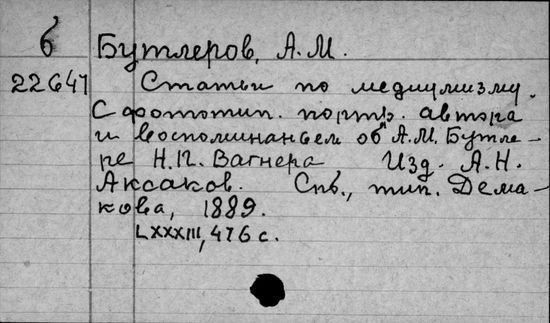 б Бутлеров, А. М.
22647 Статьи по медиумизму.
С фототип. портр. автора
и воспоминаньем об А.М. Бутле-
ре Н.П. Вагнера Изд. А.Н.
Аксаков. Спб., тип. Дема-
кова, 1889.
LXXXIII, 476 с.